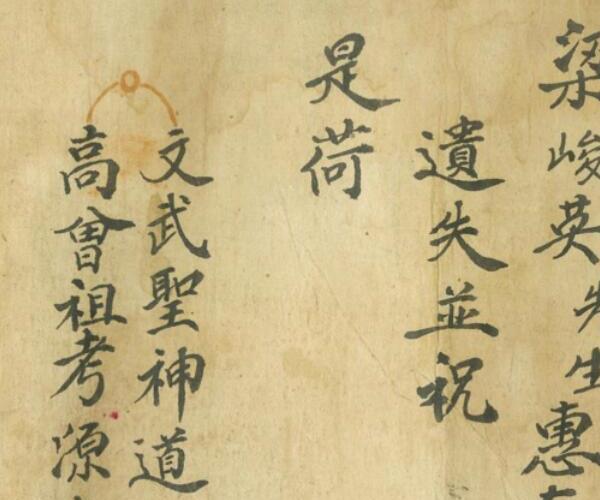 梁峻英先生惠
遺失並祝
是荷
文武聖神道
高曾祖考源